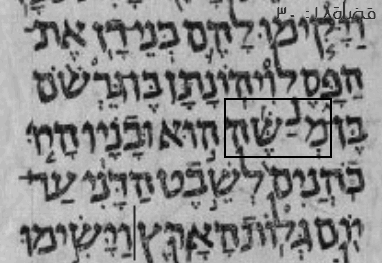 قضاة ١٨: ٣٠
וַיָּקִימוּ לָהֶם בְּנֵי־דָן אֶת־
הַפָּסֶל וִיהוֹנָתָן בֶּן־גֵּרְשֹׁם
בֶּן־מְנַשֶּׁה הוּא וּבָנָיו הָיוּ
כֹהֲנִים לְשֵׁבֶט הַדָּנִי עַד־
יוֹם גְּלוֹת הָאָרֶץ וַיָּשִׂימוּ